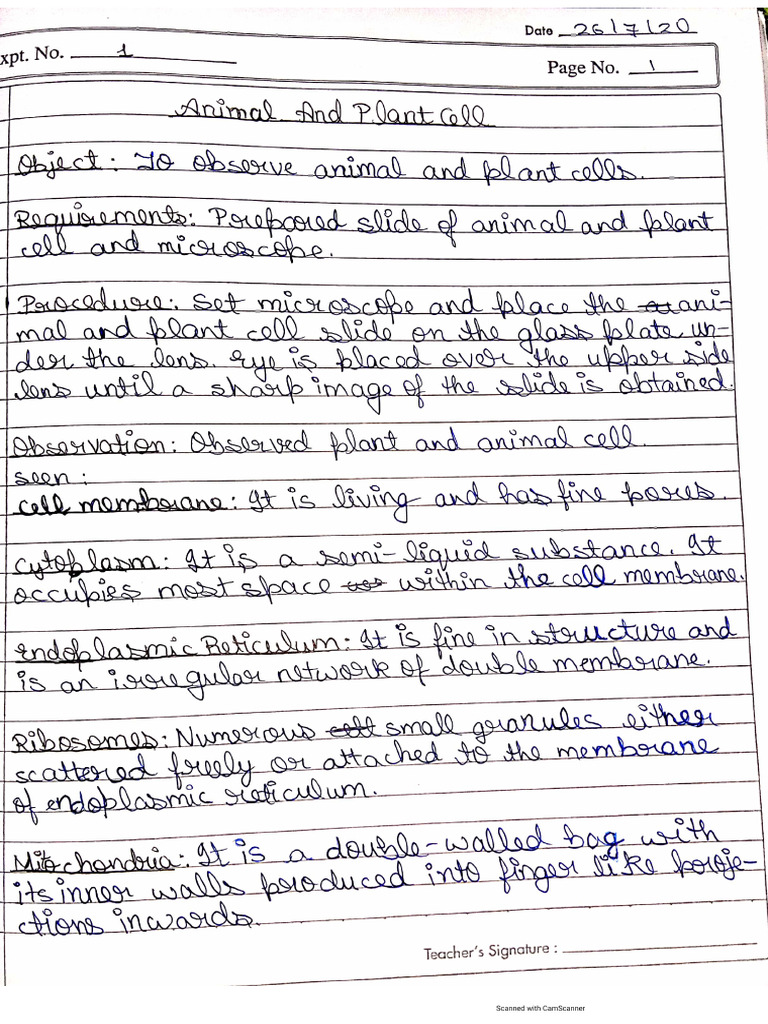 Date 26/7/20
xpt. No. 1
Page No. 1
Animal And Plant Cell
Object: To observe animal and plant cells.
Requirements: Prepared slide of animal and plant
cell and microscope.
Procedure: Set microscope and place the ani-
mal and plant cell slide on the glass plate un-
der the lens. Eye is placed over the upper side
lens until a sharp image of the slide is obtained.
Observation: Observed plant and animal cell.
seen:
cell membrane: It is living and has fine pores.
Cytoplasm: It is a semi-liquid substance. It
occupies most space within the cell membrane.
Endoplasmic Reticulum: It is fine in structure and
is an irregular network of double membrane.
Ribosomes: Numerous small granules either
scattered freely or attached to the membrane
of endoplasmic reticulum.
Mitochondria: It is a double-walled bag with
its inner walls produced into finger like proje-
ctions inwards.
Teacher's Signature :
Scanned with CamScanner